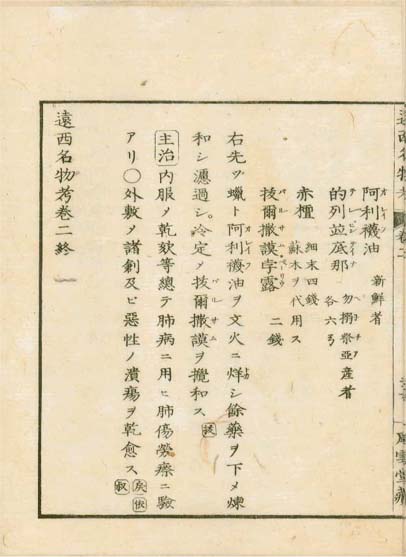 阿利襪油 新鮮者
オレイフ
的列並底那 勿搦祭亜産者 各六弓
テレビンテイナ
赤檀 細末四錢 蘇木ヲ代用ス
抜爾撒謨孛露 二錢
バルサム ペーリウ
右先ヅ蠟ト阿利襪油ヲ文火ニ烊シ餘藥ヲ下メ煉
和シ濾過シ冷定メ抜爾撒謨ヲ攪和ス
主治 内服メ乾欬等總テ肺病ニ用ヒ肺傷勞瘵ニ驗
アリ〇外敷メ諸創及ビ惡性ノ潰瘍ヲ乾愈ス
遠西名物考巻二終